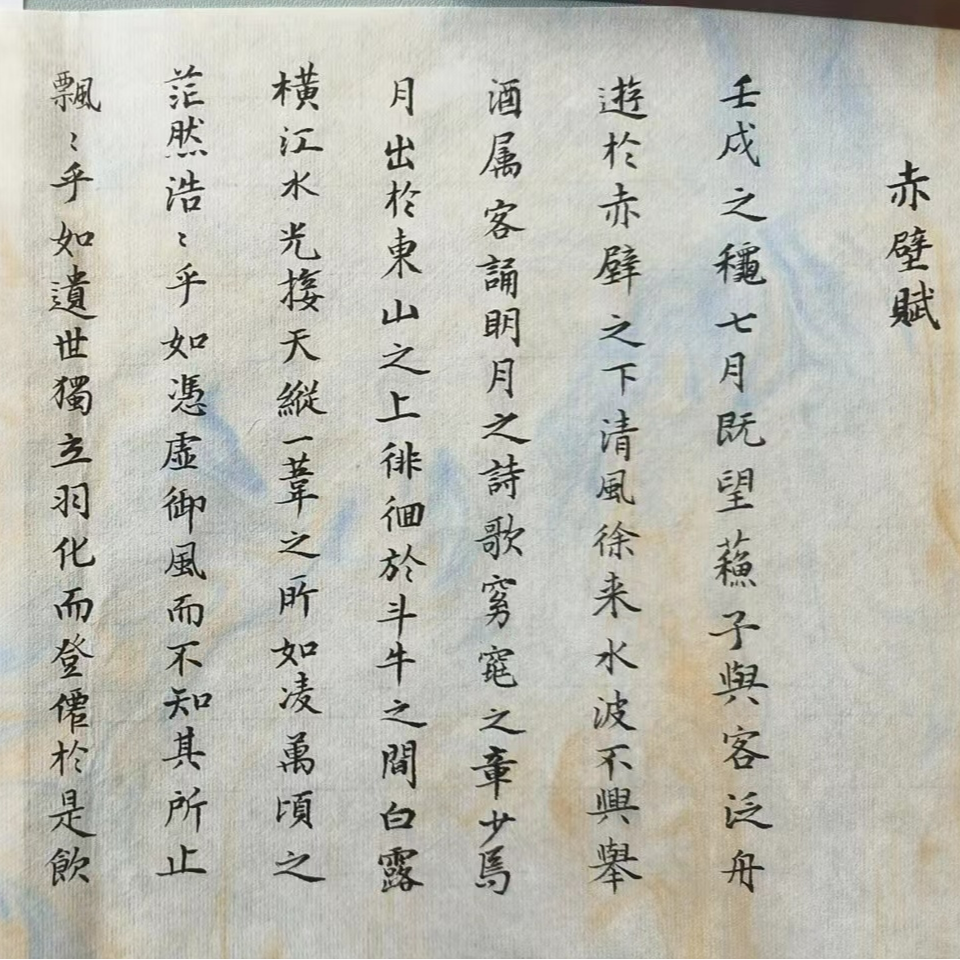 赤壁賦
壬戌之龝七月既望蘓子與客泛舟
遊於赤壁之下清風徐来水波不興舉
酒属客誦明月之詩歌窈窕之章少焉
月出於東山之上徘徊於斗牛之間白露
横江水光接天縱一葦之所如凌萬頃之
茫然浩〻乎如馮虛御風而不知其所止
飄〻乎如遺世獨立羽化而登僊於是飲